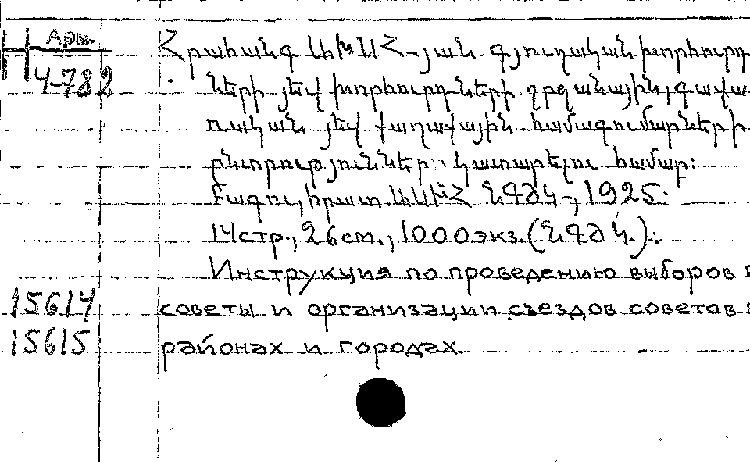 Арм.
Н
4-782
Հրահանգ ԱԽՍՀ-յան գյուղական խորհուրդ
ների յեվ խորհուրդների շրջանային, գավա
ռական յեվ քաղաքային համագումարների
ընտրություններ կատարելու համար:
Բագու, հրատ. 1925.
14стр., 26см., 1000экз.
Инструкция по проведению выборов в
15614 советы и организации съездов советов в
15615 районах и городах